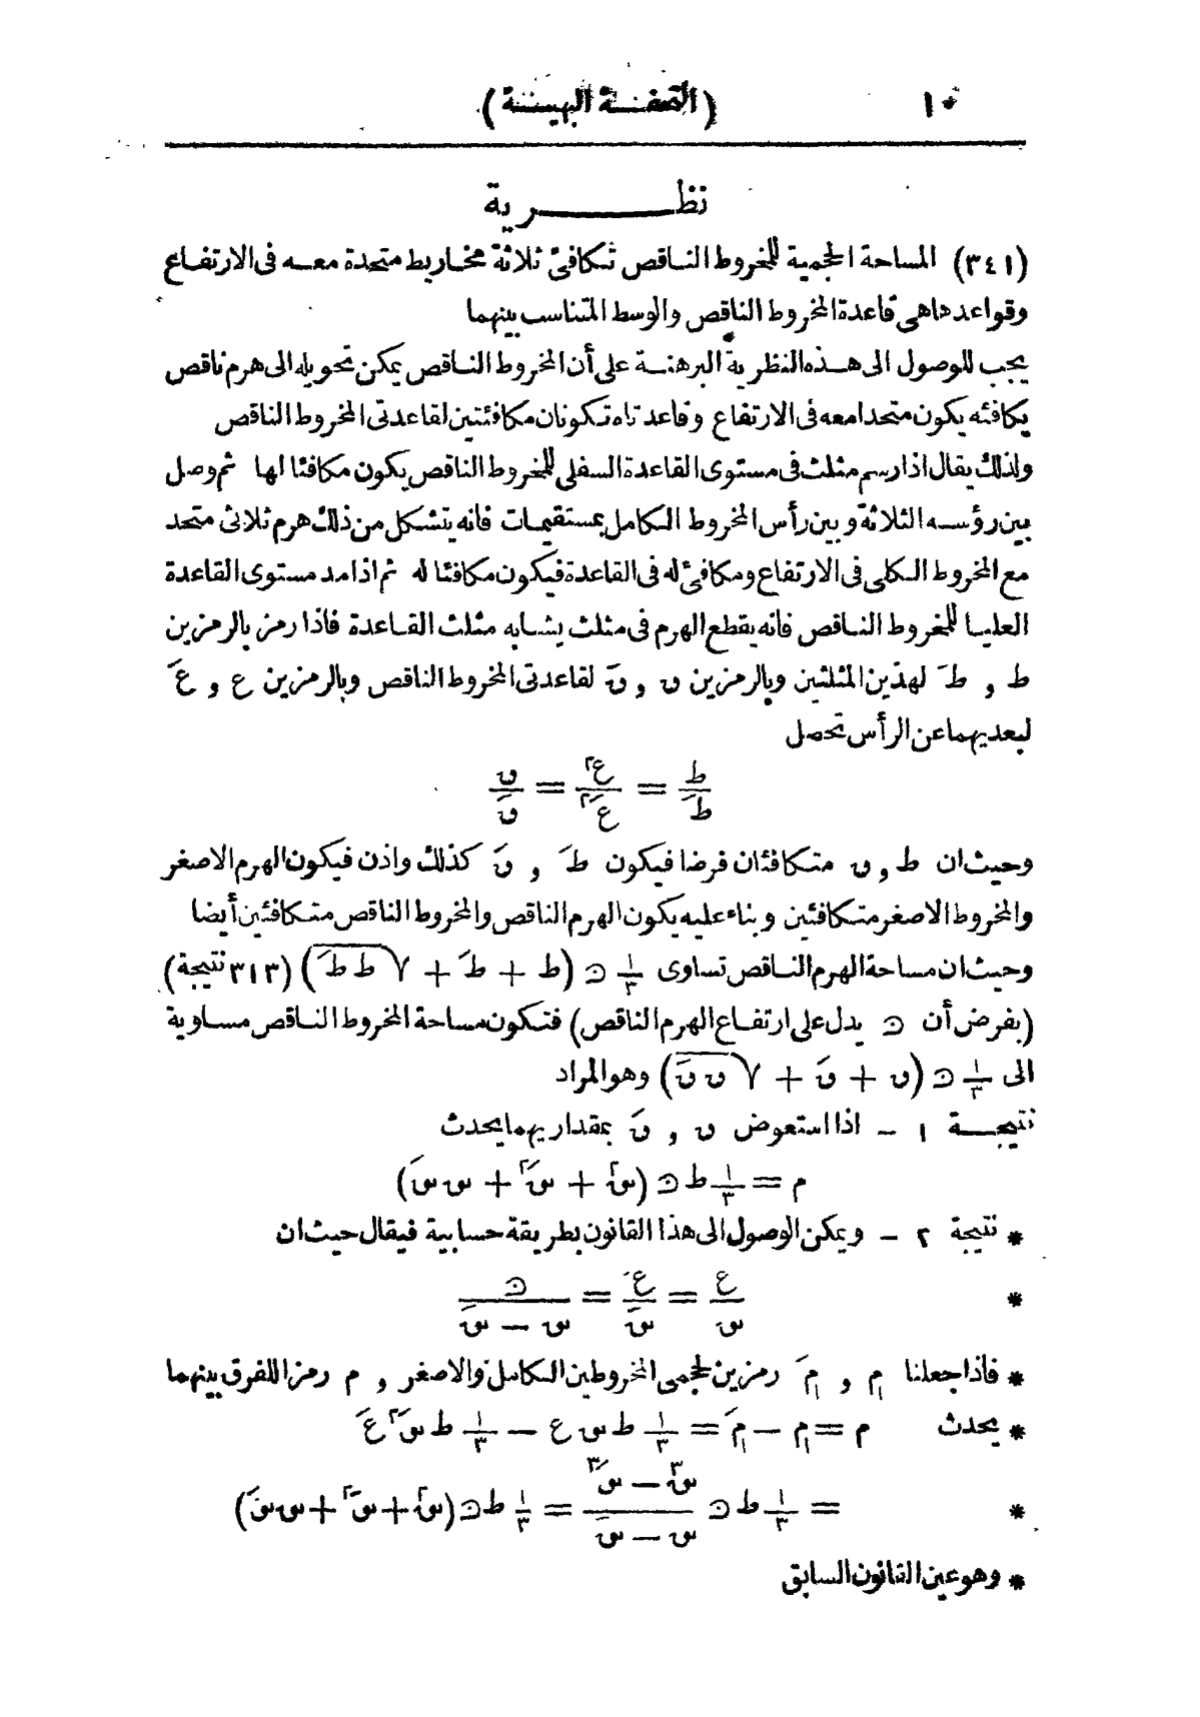 ١٠ (التحفة البهية)
نظرية
(٣٤١) المساحة الحجمية للمخروط الناقص تكافئ ثلاثة مخاريط متحدة معه فى الارتفاع
وقواعدها هى قاعدة المخروط الناقص والوسط المتناسب بينهما
يجب للوصول الى هذه النظرية البرهنة على أن المخروط الناقص يمكن تحويله الى هرم ناقص
يكافئه يكون متحدا معه فى الارتفاع وقاعدتاه تكونان مكافئتين لقاعدتى المخروط الناقص
ولذلك يقال اذا رسم مثلث فى مستوى القاعدة السفلى للمخروط الناقص يكون مكافئا لها ثم وصل
بين رؤسه الثلاثة وبين رأس المخروط الكامل بمستقيمات فانه يتشكل من ذلك هرم ثلاثى متحد
مع المخروط الكلى فى الارتفاع ومكافئ له فى القاعدة فيكون مكافئا له ثم اذا مد مستوى القاعدة
العليا للمخروط الناقص فانه يقطع الهرم فى مثلث يشابه مثلث القاعدة فاذا رمز بالرمزين
ط , طَ لهذين المثلثين وبالرمزين ں , ںَ لقاعدتى المخروط الناقص وبالرمزين ع , عَ
لبعديهما عن الرأس تحصل
ط/طَ = ع٢/عَ٢ = ں/ںَ
وحيث ان ط , ں متكافئان فرضا فيكون طَ , ںَ كذلك واذن فيكون الهرم الاصغر
والمخروط الاصغر متكافئين وبناء عليه يكون الهرم الناقص والمخروط الناقص متكافئين أيضا
وحيث ان مساحة الهرم الناقص تساوى ١/٣ ﺩ (ط + طَ + √ط طَ) (٣١٣ نتيجة)
(بفرض أن ﺩ يدل على ارتفاع الهرم الناقص) فتكون مساحة المخروط الناقص مساوية
الى ١/٣ ﺩ (ں + ںَ + √ں ںَ) وهو المراد
نتيجة ١ - اذا استعوض ں , ںَ بمقداريهما يحدث
م = ١/٣ ط ﺩ (س٢ + سَ٢ + س سَ)
* نتيجة ٢ - ويمكن الوصول الى هذا القانون بطريقة حسابية فيقال حيث ان
* ع/س = عَ/سَ = ﺩ/(س - سَ)
* فاذا جعلنا م١ , مَ١ رمزين لحجمى المخروطين الكامل والاصغر , م رمزا للفرق بينهما
* يحدث م = م١ - مَ١ = ١/٣ ط س ع - ١/٣ ط سَ٢ عَ
* = ١/٣ ط ﺩ (س٣ - سَ٣)/(س - سَ) = ١/٣ ط ﺩ (س٢ + سَ٢ + س سَ)
* وهو عين القانون السابق